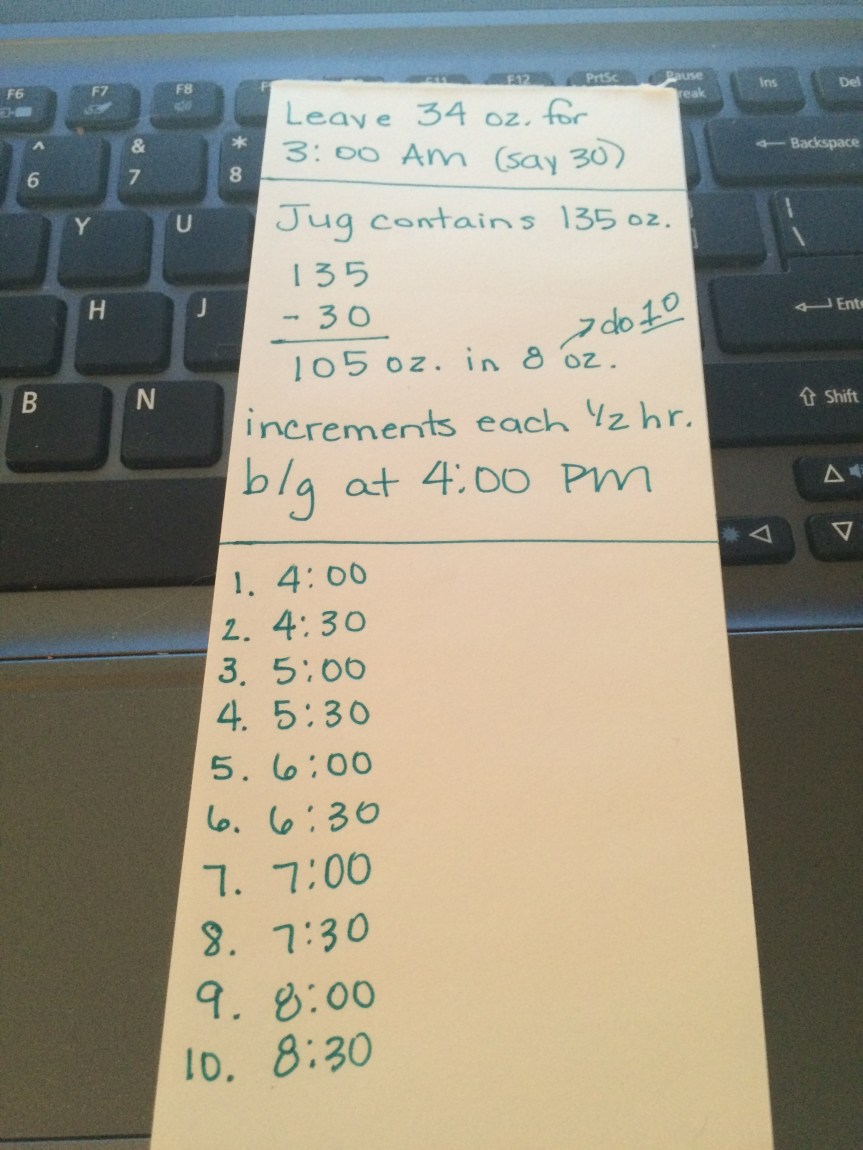 F6 F7 F8 F11 F12 PrtSc Pause Ins Del
^ & * reak Backspace
6 7 8
Y U | \
H J Enter
B N Shift
Leave 34 oz. for
3:00 Am (say 30)
Jug contains 135 oz.
135
- 30
do 10
105 oz. in 8 oz.
increments each 1/2 hr.
b/g at 4:00 pm
1. 4:00
2. 4:30
3. 5:00
4. 5:30
5. 6:00
6. 6:30
7. 7:00
8. 7:30
9. 8:00
10. 8:30